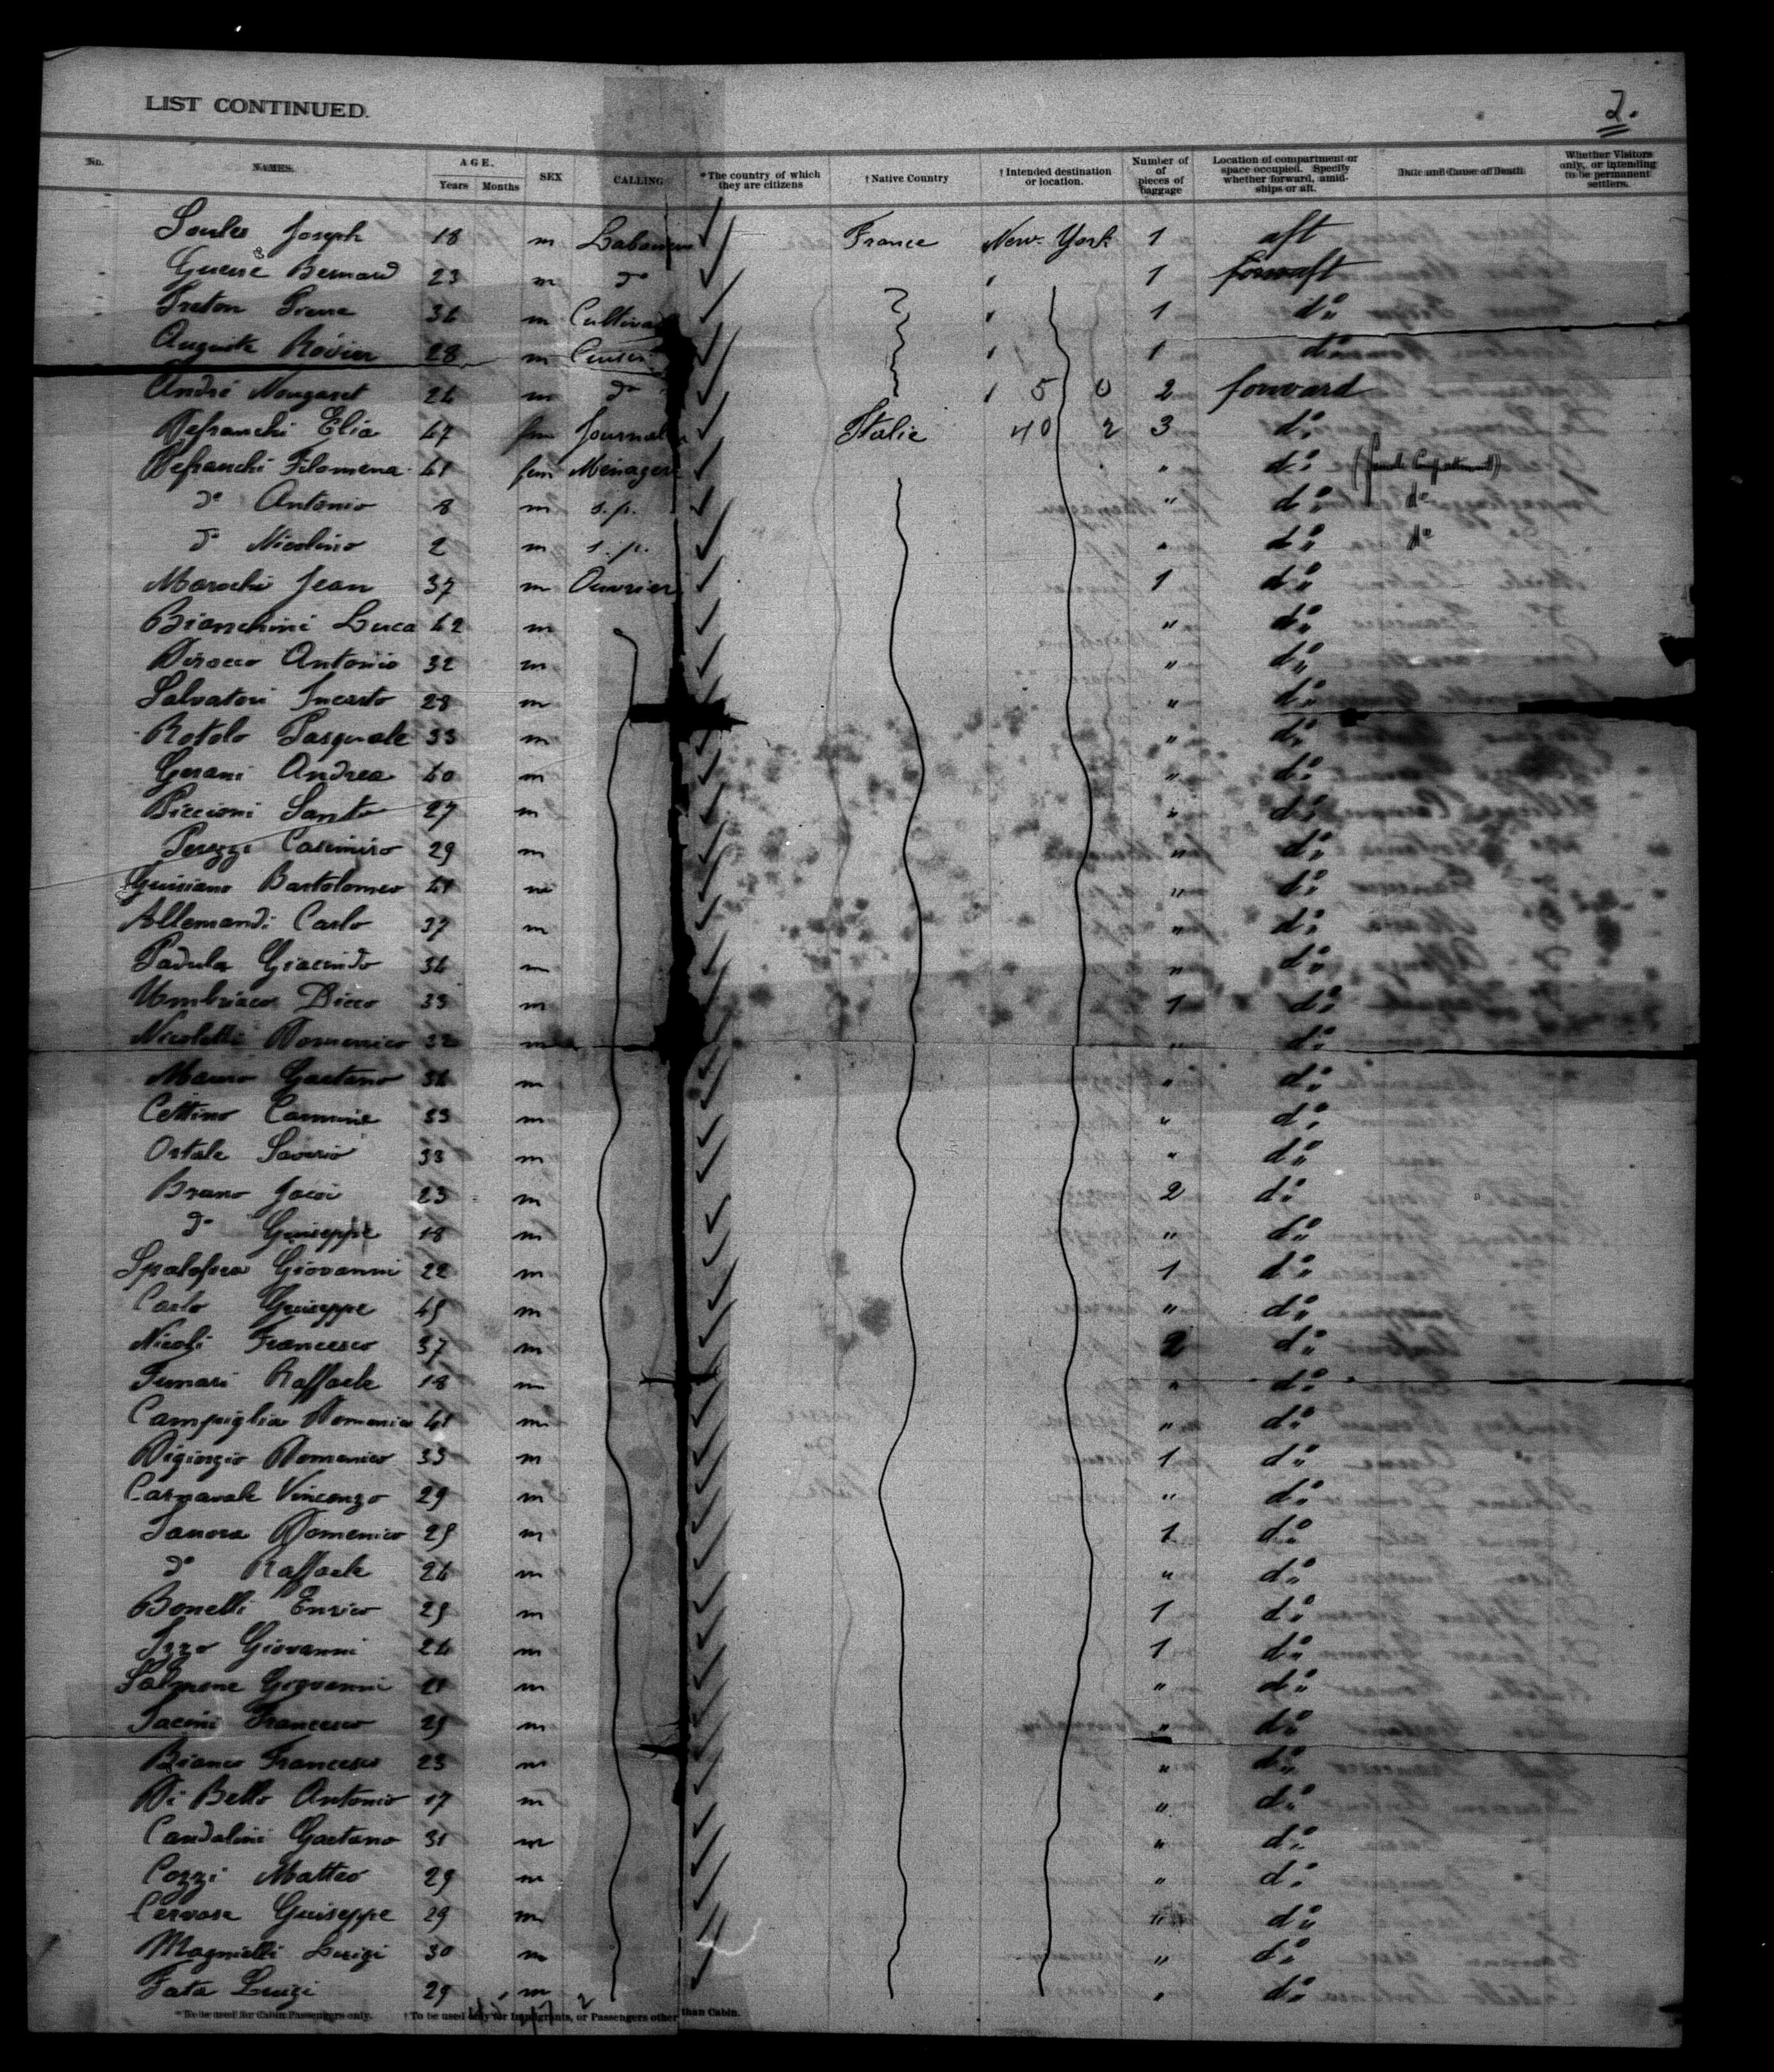 LIST CONTINUED.
2.
No. NAMES. AGE. Years Months SEX CALLING *The country of which they are citizens †Native Country †Intended destination or location. Number of pieces of baggage Location of compartment or space occupied. Specify whether forward, amidships or aft. Date and Cause of Death Whether Visitors only, or intending to be permanent settlers.
Joseph 18 m France New-York 1 aft
Bernard 23 m do " 1 aft
36 m " 1 do
Auguste Rovier 28 m " 1 do
André Nougaret 26 m do " 5 0 2 forward
Defranchi Elia 47 Journal Italie 40 2 3 do
Defranchi Filomena 41 fem Ménagère " do
do Antonio 8 m s.p. " do do
do Nicolino 2 m s.p. " do do
Marochi Jean 37 m Ouvrier 1 do
Bianchini Luca 42 m " do
Dirocco Antonio 32 m " do
Salvatori 28 m " do
Rotolo Pasquale 33 m " do
Gerani Andrea 40 m " do
Piccioni Santo 27 m " do
Perezzi Casimiro 29 m " do
Guisiano Bartolomeo 41 m " do
Allemandi Carlo 37 m " do
Padula Giacindo 36 m " do
Umbriaco 33 m 1 do
Nicoletti Domenico 32 m " do
Mauro Gaetano 36 m " do
Cettino Carmine 33 m " do
Ostale Saverio 33 m " do
Bruno 23 m 2 do
do Guiseppe 18 m " do
Giovanni 22 m 1 do
Carlo Guiseppe 45 m " do
Nicoli Francesco 37 m 2 do
Raffaele 18 m " do
Campiglia Domenico 41 m " do
Digiorgio Domenico 33 m 1 do
Carnavale Vincenzo 29 m " do
Domenico 25 m 1 do
do Raffaele 26 m " do
Bonelli Enrico 25 m 1 do
Izzo Giovanni 26 m 1 do
Salmone Giovanni m " do
Pacini Francesco 25 m " do
Bianco Francesco 23 m " do
Di Bello Antonio 17 m " do
Candalini Gaetano 31 m " do
Cozzi Matteo 29 m " do
Cervase Guiseppe 29 m " do
Magnielli Luigi 30 m " do
Fata Luigi 29 m " do
*To be used for Cabin Passengers only. †To be used only for Immigrants, or Passengers other than Cabin.